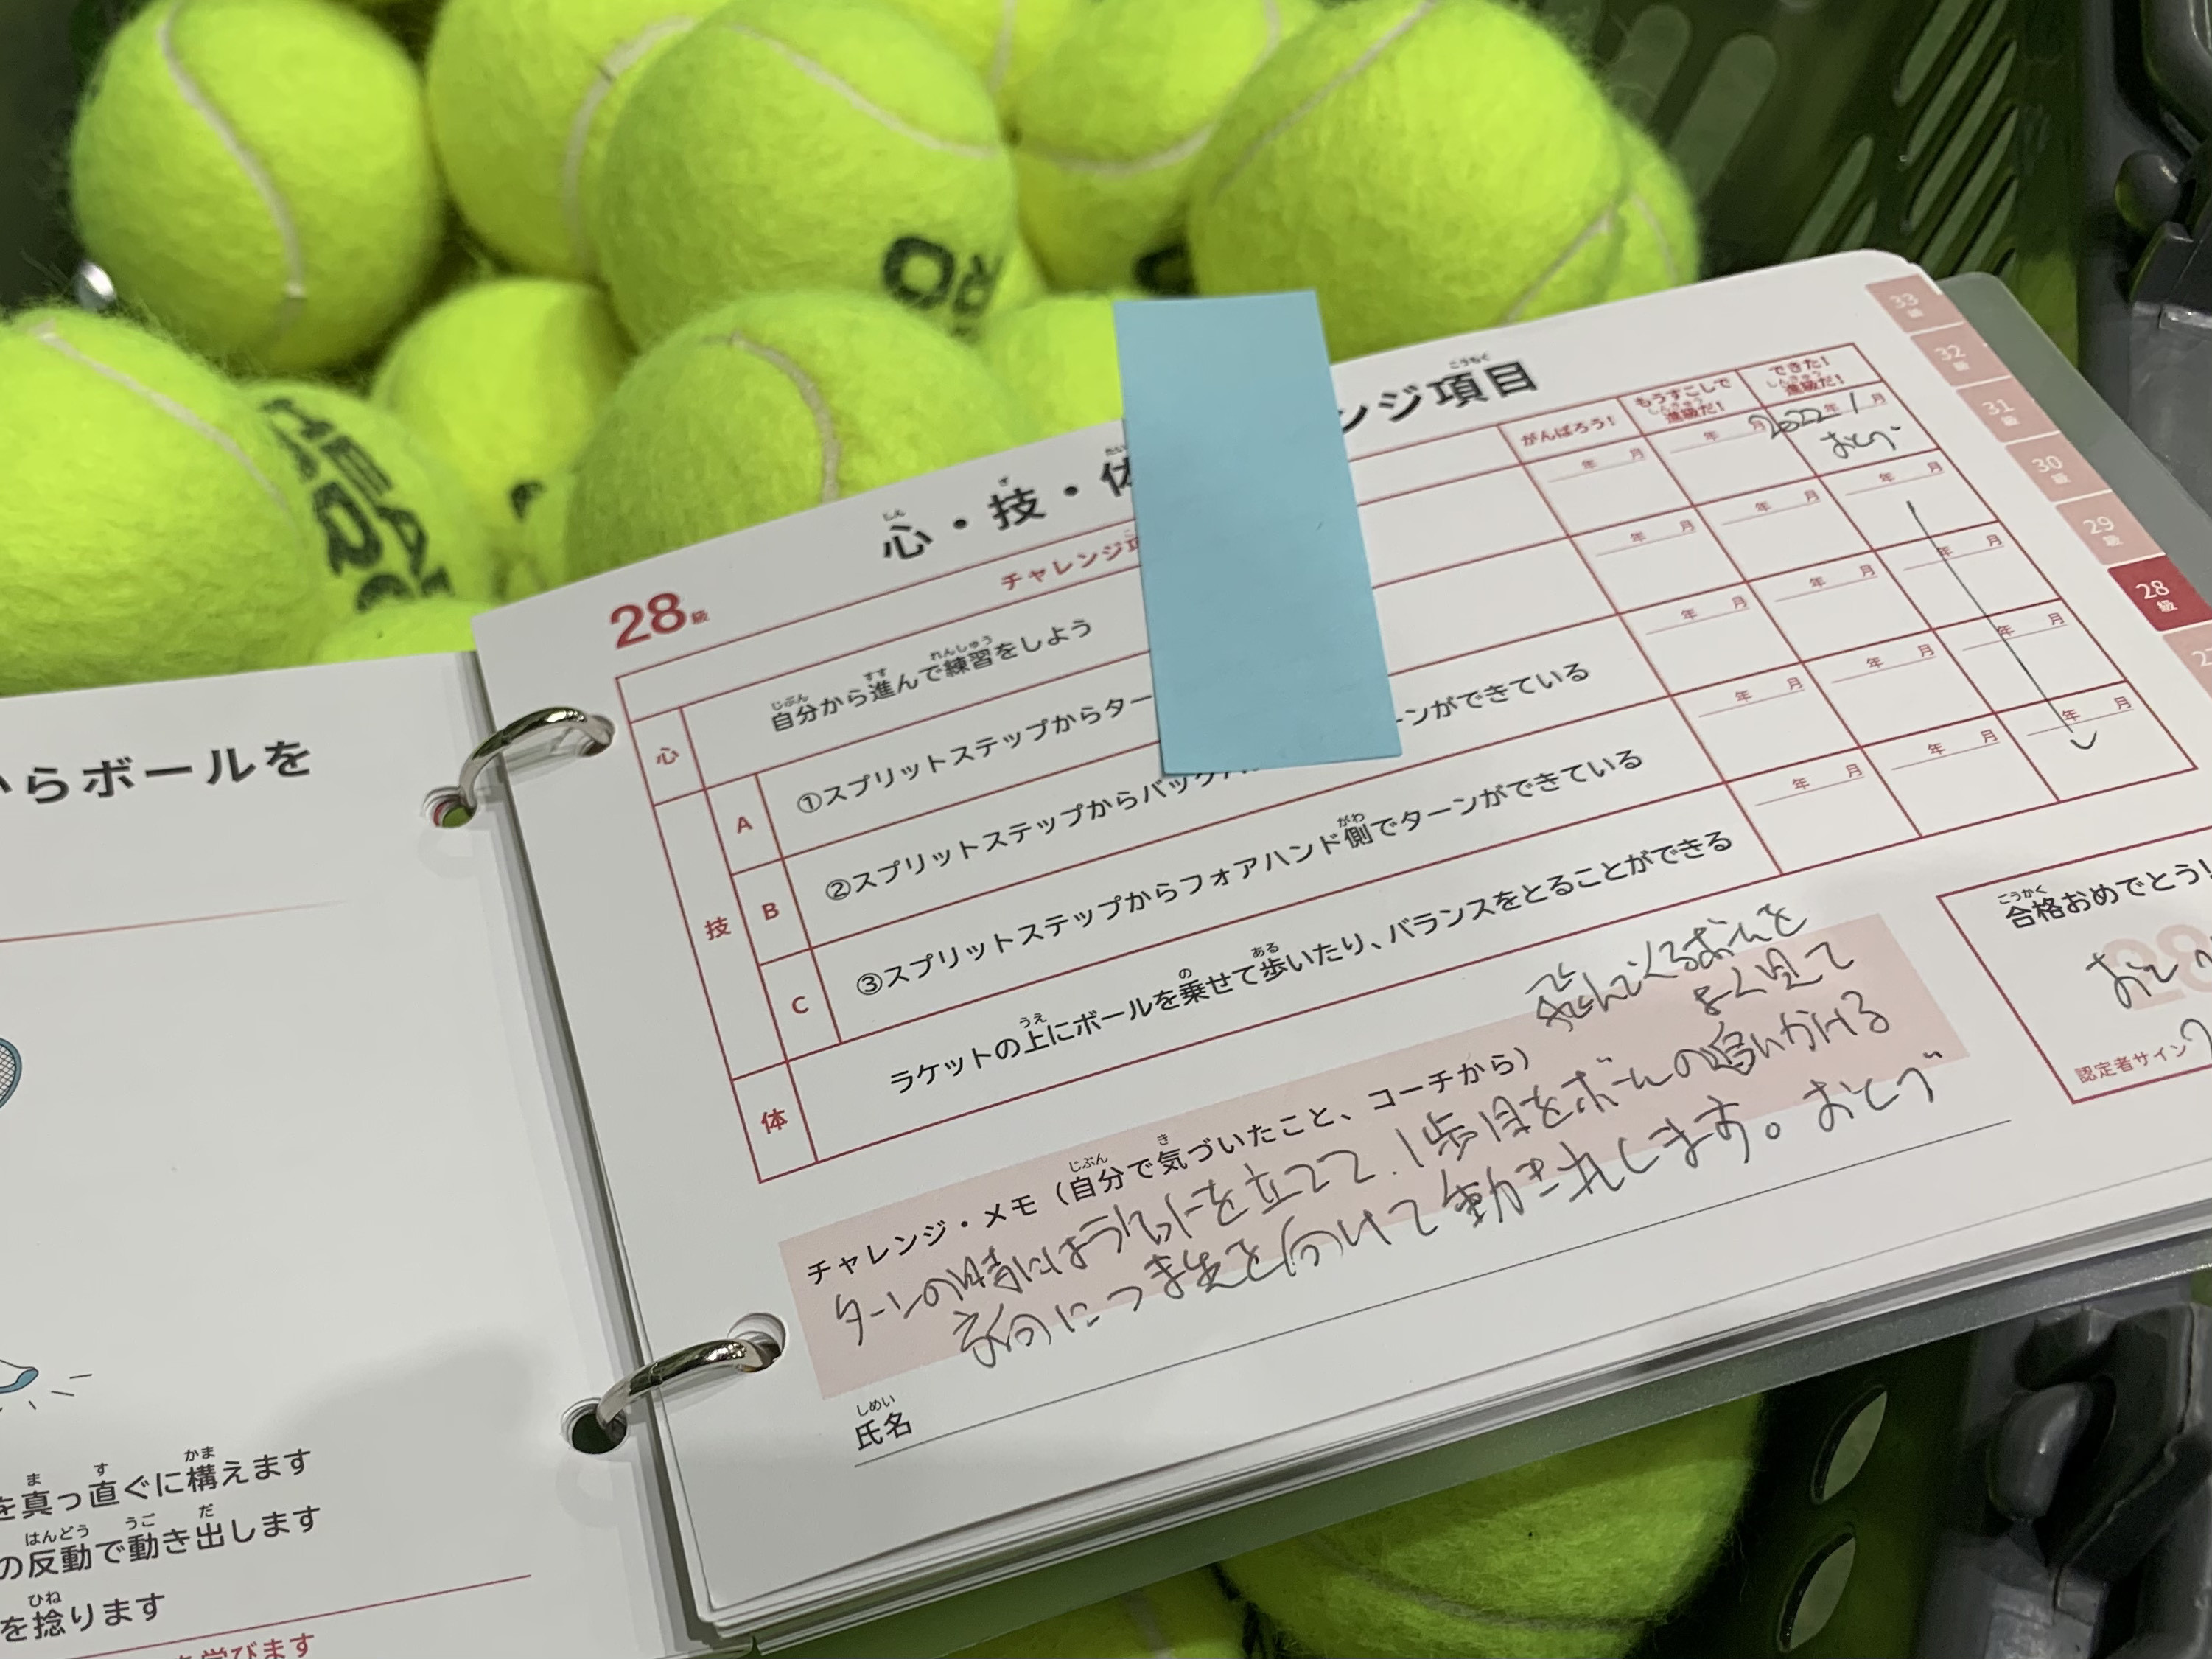 HEAD
PRO
PRO
からボールを
を真っ直ぐに構えます
の反動で動き出します
を捻ります
学びます
28級
心・技・体
ンジ項目
チャレンジ項
がんばろう!
もうすこしで進級だ!
できた!進級だ!
心
自分から進んで練習をしよう
年 月
年 月
2022年1月
おとづ
技
A
①スプリットステップからター
年 月
年 月
年 月
B
②スプリットステップからバックハ
ーンができている
年 月
年 月
年 月
C
③スプリットステップからフォアハンド側でターンができている
年 月
年 月
年 月
体
ラケットの上にボールを乗せて歩いたり、バランスをとることができる
年 月
年 月
年 月
チャレンジ・メモ(自分で気づいたこと、コーチから)
飛んでくるボールを
よく見て
ターンの時にはラケットを立てて、1歩目をボールの追いかける
方向につま先を向けて動き出します。おとづ
氏名
合格おめでとう!
おとづ
認定者サイン
33級
32級
31級
30級
29級
28級